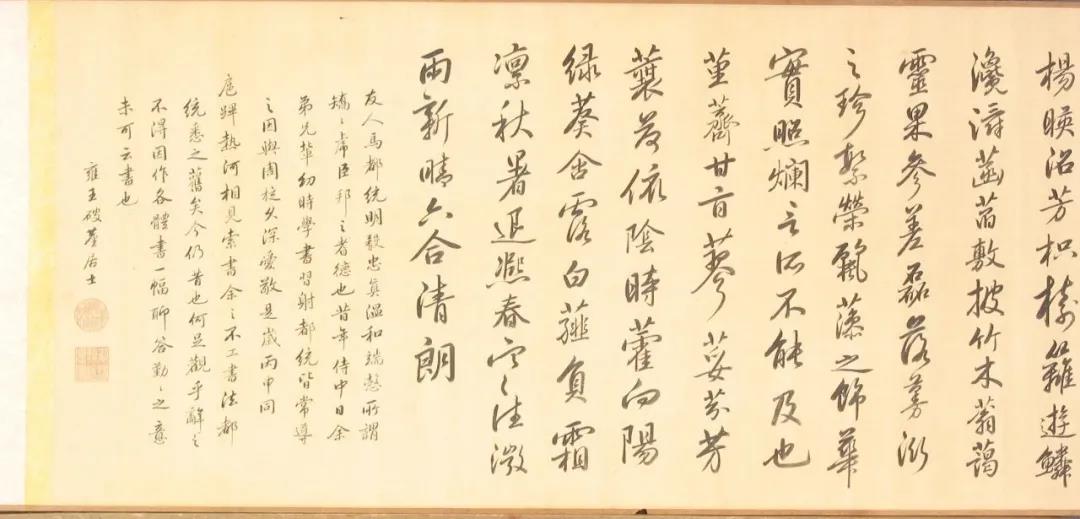 楊暎沼芳枳樹籬遊鱗
瀺灂菡萏敷披竹木蓊藹
靈果參差磊落蔓衍
之珍繁榮麗藻之飾華
實照爛言所不能及也
堇薺甘旨蓼荽芬芳
蘘荷依陰時藿向陽
緑葵含露白薤負霜
凛秋暑退熙春寒往微
雨新晴六合清朗
友人馬都統明毅忠貞溫和端慤所謂
矯〻虎臣邦之耆德也昔年侍中日余
弟兄輩幼時學書習射都統皆常導
之因與周旋久深愛敬是歲丙申同
扈蹕熱河相見索書余〻不工書法都
統悉之舊矣今仍昔也何足觀乎辭之
不得因作各體書一幅聊答勤〻之意
未可云書也
雍王破塵居士